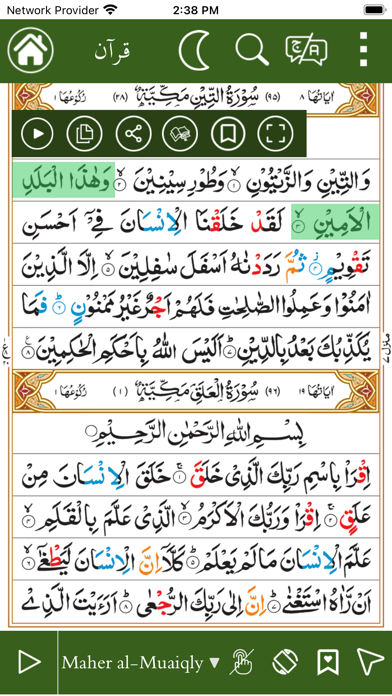 Network Provider 2:38 PM
قرآن
اٰیَاتُهَا ۸ (۹۵) سُوْرَةُ التِّيْنِ مَكِّيَّةٌ (۲۸) رُكُوْعُهَا ۱
وَالتِّيْنِ وَالزَّيْتُوْنِ ۱ وَطُوْرِ سِيْنِيْنَ ۲ وَهٰذَا الْبَلَدِ
الْاَمِيْنِ ۳ لَقَدْ خَلَقْنَا الْاِنْسَانَ فِيْٓ اَحْسَنِ
تَقْوِيْمٍ ۴ ثُمَّ رَدَدْنٰهُ اَسْفَلَ سٰفِلِيْنَ ۵ اِلَّا الَّذِيْنَ
اٰمَنُوْا وَعَمِلُوا الصّٰلِحٰتِ فَلَهُمْ اَجْرٌ غَيْرُ مَمْنُوْنٍ ۶ فَمَا
يُكَذِّبُكَ بَعْدُ بِالدِّيْنِ ۷ اَلَيْسَ اللّٰهُ بِاَحْكَمِ الْحٰكِمِيْنَ ۸
اٰیَاتُهَا ۱۹ (۹۶) سُوْرَةُ الْعَلَقِ مَكِّيَّةٌ (۱) رُكُوْعُهَا ۱
بِسْمِ اللّٰهِ الرَّحْمٰنِ الرَّحِيْمِ
اِقْرَاْ بِاسْمِ رَبِّكَ الَّذِيْ خَلَقَ ۱ خَلَقَ الْاِنْسَانَ مِنْ
عَلَقٍ ۲ اِقْرَاْ وَرَبُّكَ الْاَكْرَمُ ۳ الَّذِيْ عَلَّمَ بِالْقَلَمِ ۴
عَلَّمَ الْاِنْسَانَ مَا لَمْ يَعْلَمْ ۵ كَلَّآ اِنَّ الْاِنْسَانَ لَيَطْغٰٓى ۶
اَنْ رَّاٰهُ اسْتَغْنٰى ۷ اِنَّ اِلٰى رَبِّكَ الرُّجْعٰى ۸ اَرَءَيْتَ الَّذِيْ
Maher al-Muaiqly